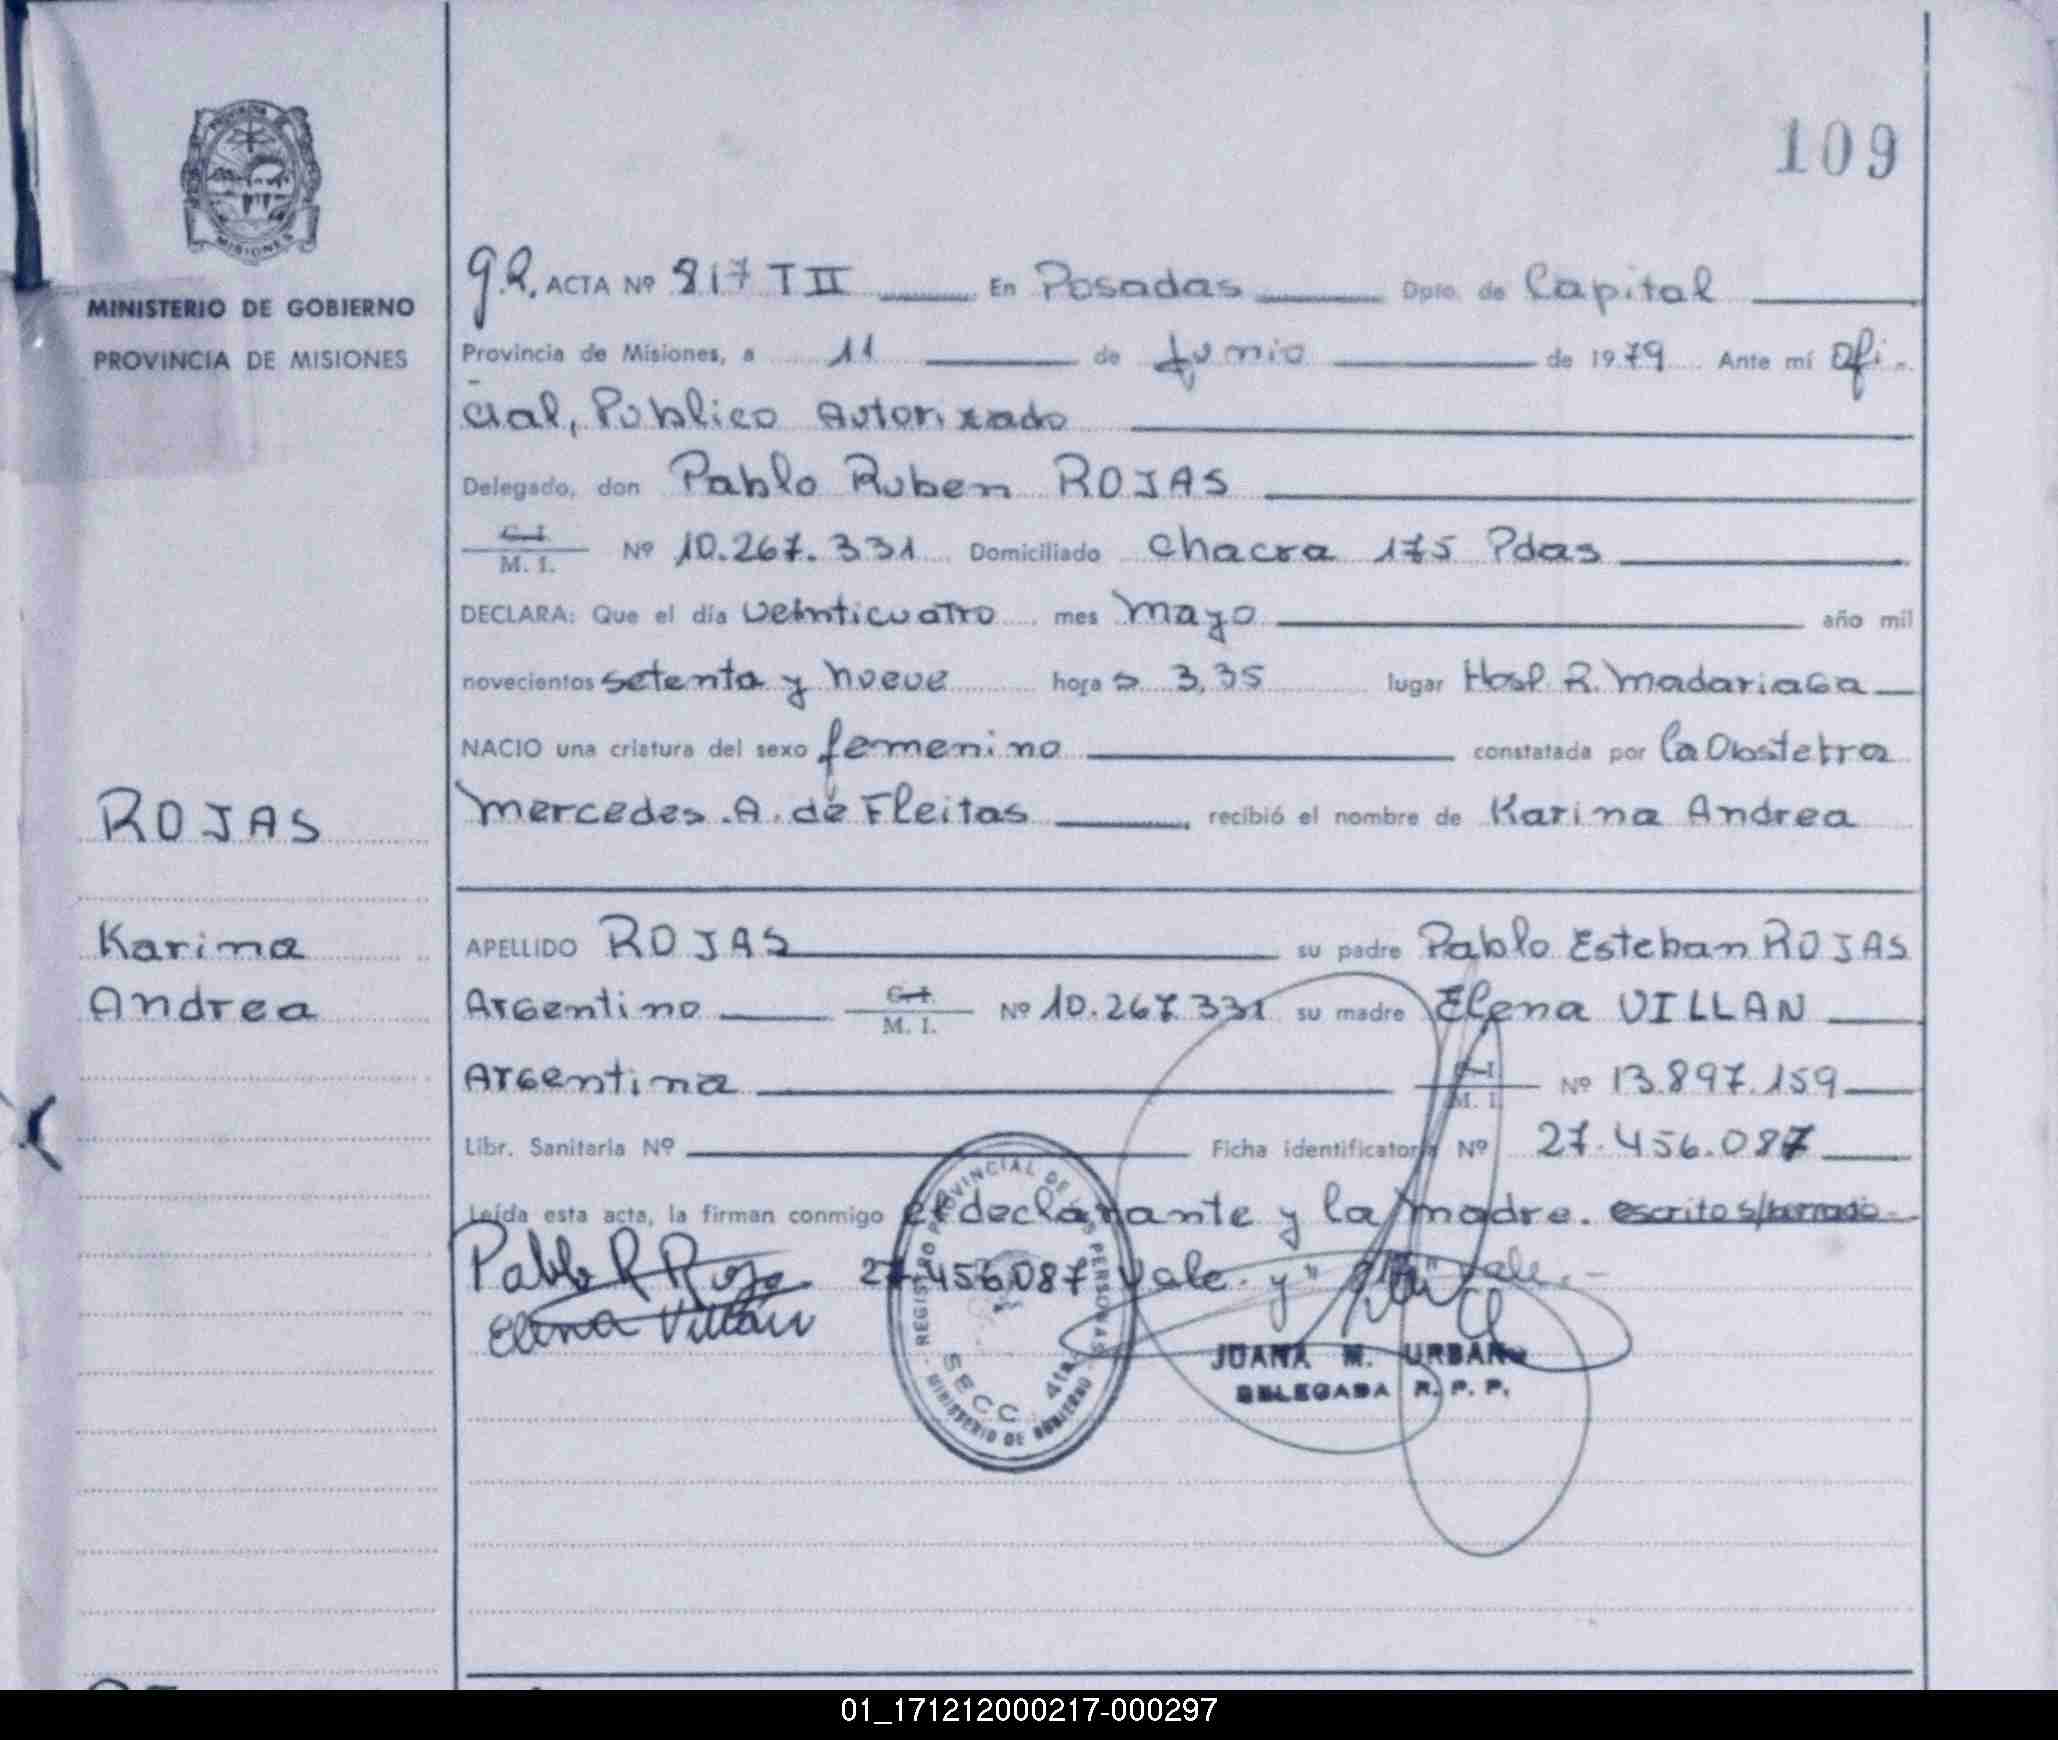 109
PROVINCIA DE
MISIONES
MINISTERIO DE GOBIERNO
PROVINCIA DE MISIONES
ROJAS
Karina
Andrea
ACTA Nº 817 T II En Posadas Dpto. de Capital
Provincia de Misiones, a 11 de Junio de 1979 Ante mí Ofi-
cial, Publico Autorizado
Delegado, don Pablo Ruben ROJAS
C. I.
M. I. Nº 10.267.331 Domiciliado Chacra 175 Pdas
DECLARA: Que el día veinticuatro mes Mayo año mil
novecientos setenta y nueve hora s 3,35 lugar Hosp. R. Madariaga
NACIO una criatura del sexo femenino constatada por la Obstetra
Mercedes A. de Fleitas recibió el nombre de Karina Andrea
APELLIDO ROJAS su padre Pablo Esteban ROJAS
Argentino C. I. M. I. Nº 10.267.331 su madre Elena VILLAN
Argentina C. I. M. I. Nº 13.897.159
Libr. Sanitaria Nº Ficha identificatoria Nº 27.456.087
Leída esta acta, la firman conmigo el declarante y la madre. escrito s/borrado
Pablo R Rojas 27.456.087 Vale. y vale.-
Elena Villán
REGISTRO PROVINCIAL DE LAS PERSONAS
SECC. 4ta.
MINISTERIO DE GOBIERNO
JUANA M. URBAN
DELEGADA R. P. P.
01_171212000217-000297